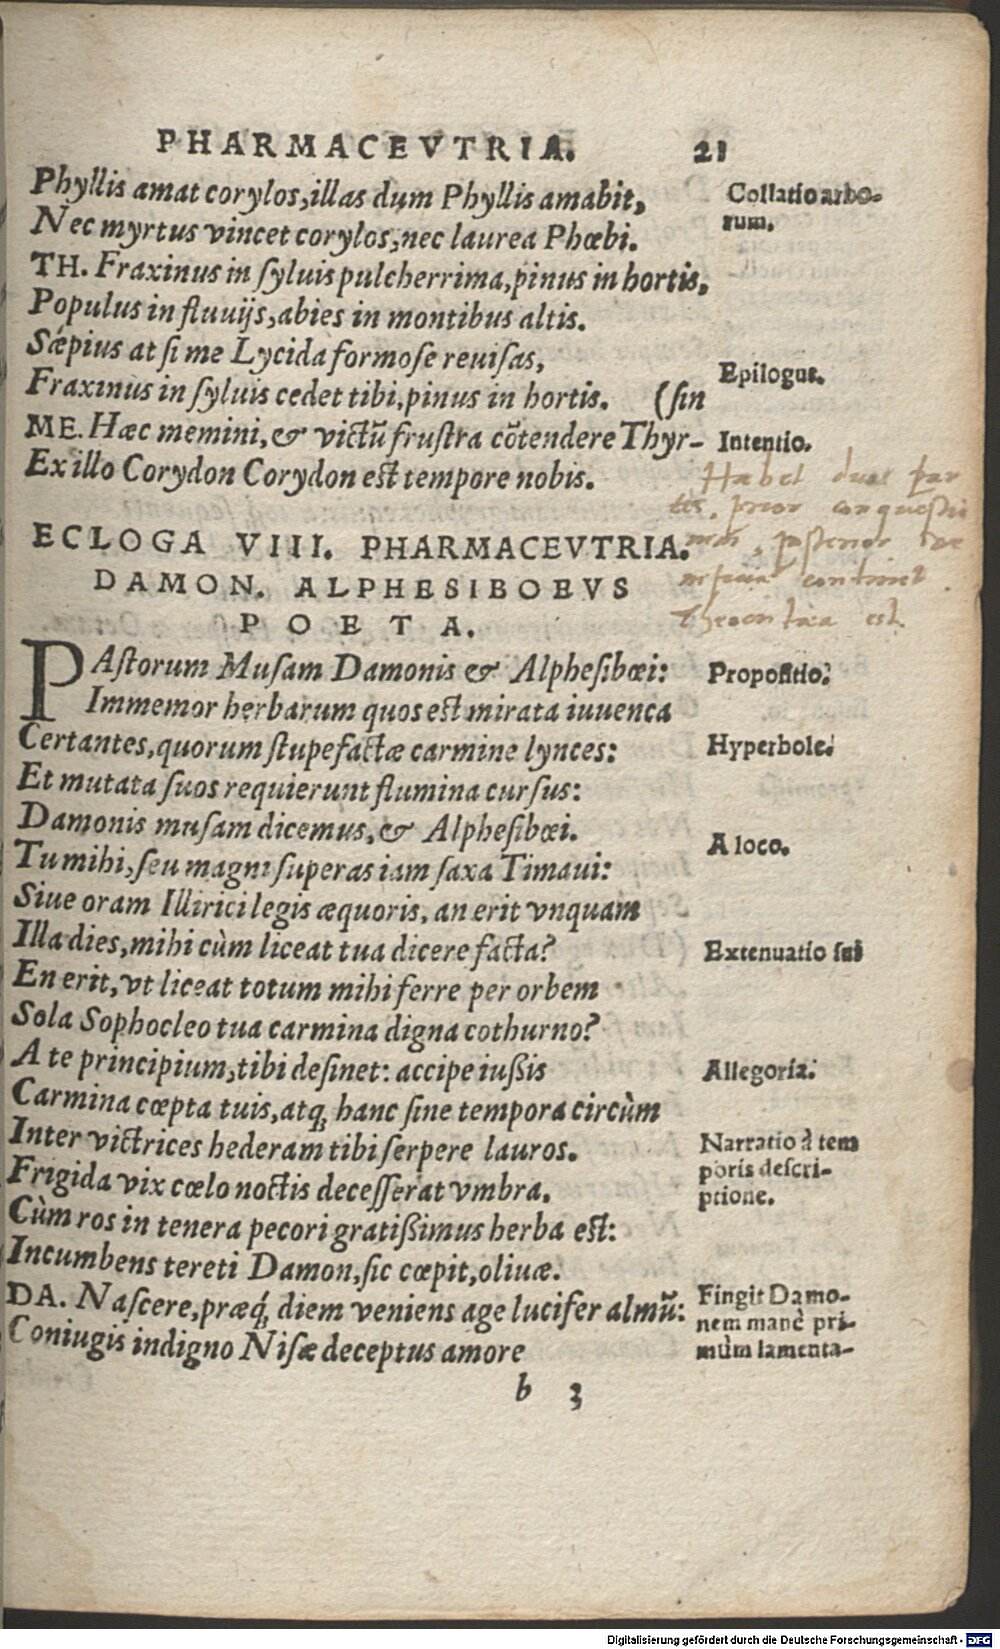 PHARMACEVTRIA. 21
Phyllis amat corylos, illas dum Phyllis amabit,
Nec myrtus vincet corylos, nec laurea Phœbi.
TH. Fraxinus in syluis pulcherrima, pinus in hortis,
Populus in fluuijs, abies in montibus altis.
Sæpius at si me Lycida formose reuisas,
Fraxinus in syluis cedet tibi, pinus in hortis. (sin
ME. Hæc memini, & victũ frustra cõtendere Thyr-
Ex illo Corydon Corydon est tempore nobis.
Collatio arbo-
rum.
Epilogus.
Intentio.
Habet duas par
tes, prior conquestio
nem, posterior ve
continet
est
ECLOGA VIII. PHARMACEVTRIA.
DAMON. ALPHESIBOEVS
POETA.
PAstorum Musam Damonis & Alphesibœi:
Immemor herbarum quos est mirata iuuenca
Certantes, quorum stupefactæ carmine lynces:
Et mutata suos requierunt flumina cursus:
Damonis musam dicemus, & Alphesibœi.
Tu mihi, seu magni superas iam saxa Timaui:
Siue oram Illirici legis æquoris, an erit vnquam
Illa dies, mihi cùm liceat tua dicere facta?
En erit, vt liceat totum mihi ferre per orbem
Sola Sophocleo tua carmina digna cothurno?
A te principium, tibi desinet: accipe iußis
Carmina cœpta tuis, atq; hanc sine tempora circùm
Inter victrices hederam tibi serpere lauros.
Frigida vix cœlo noctis decesserat vmbra,
Cùm ros in tenera pecori gratißimus herba est:
Incumbens tereti Damon, sic cœpit, oliuæ.
DA. Nascere, præq; diem veniens age lucifer almũ:
Coniugis indigno Nisæ deceptus amore
Propositio.
Hyperbole.
A loco.
Extenuatio sui
Allegoria.
Narratio à tem
poris descri-
ptione.
Fingit Damo-
nem manè pri-
mùm lamenta-
b 3
Digitalisierung gefördert durch die Deutsche Forschungsgemeinschaft - DFG